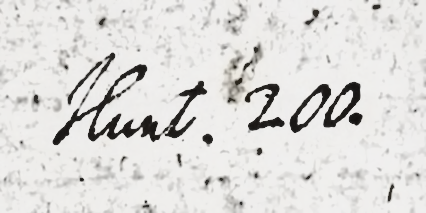 Hunt. 200.